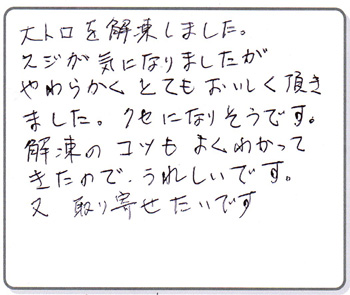 大トロを解凍しました。
スジが気になりましたが
やわらかく とてもおいしく頂き
ました。クセになりそうです。
解凍の コツも よくわかって
きたので、うれしいです。
又 取り寄せたいです